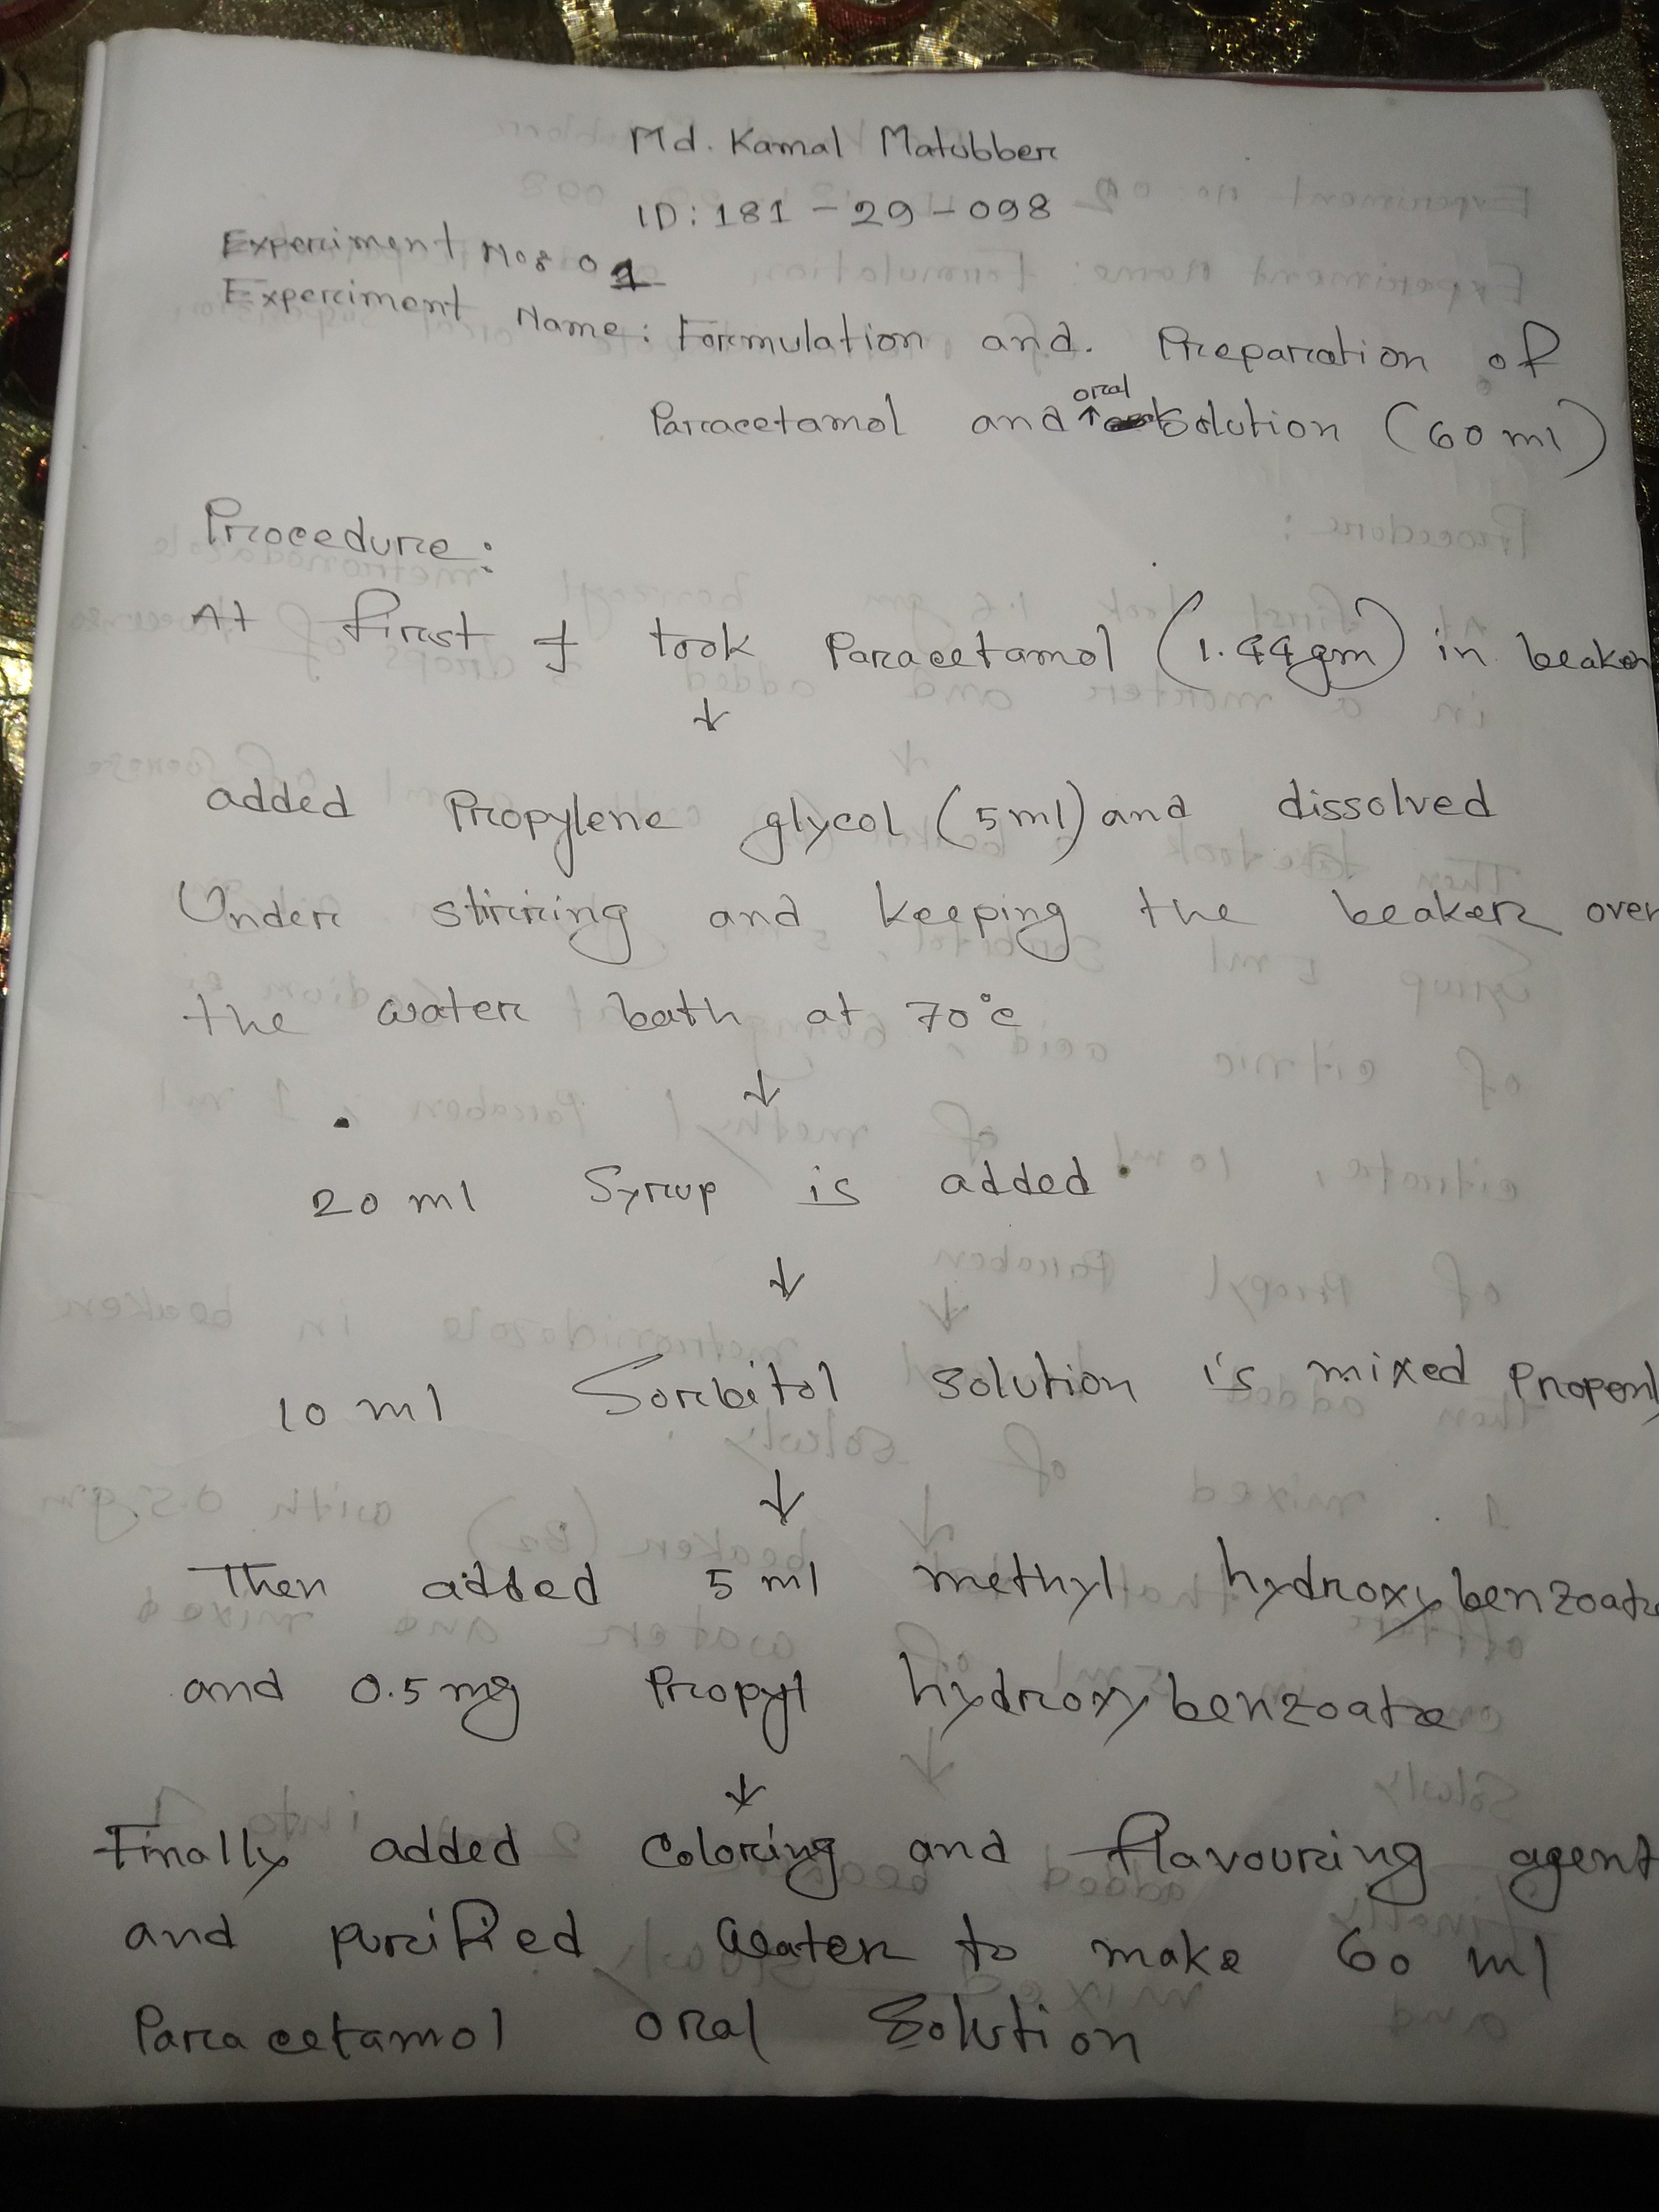 Md. Kamal Matubber
ID: 181 - 29 - 098
Experiment No: 01
Experiment Name: Formulation and. Preparation of
Paracetamol and oral Solution (60 ml)
Procedure:
At first I took Paracetamol (1.44gm) in beaker
↓
added Propylene glycol (5ml) and dissolved
Under stirring and keeping the beaker over
the water bath at 70°c
↓
20 ml Syrup is added.
↓
10 ml Sorbitol solution is mixed Properly
↓
Then added 5 ml methyl hydroxybenzoate
and 0.5 mg Propyl hydroxybenzoate
↓
Finally added coloring and flavouring agent
and purified water to make 60 ml
Paracetamol oral Solution